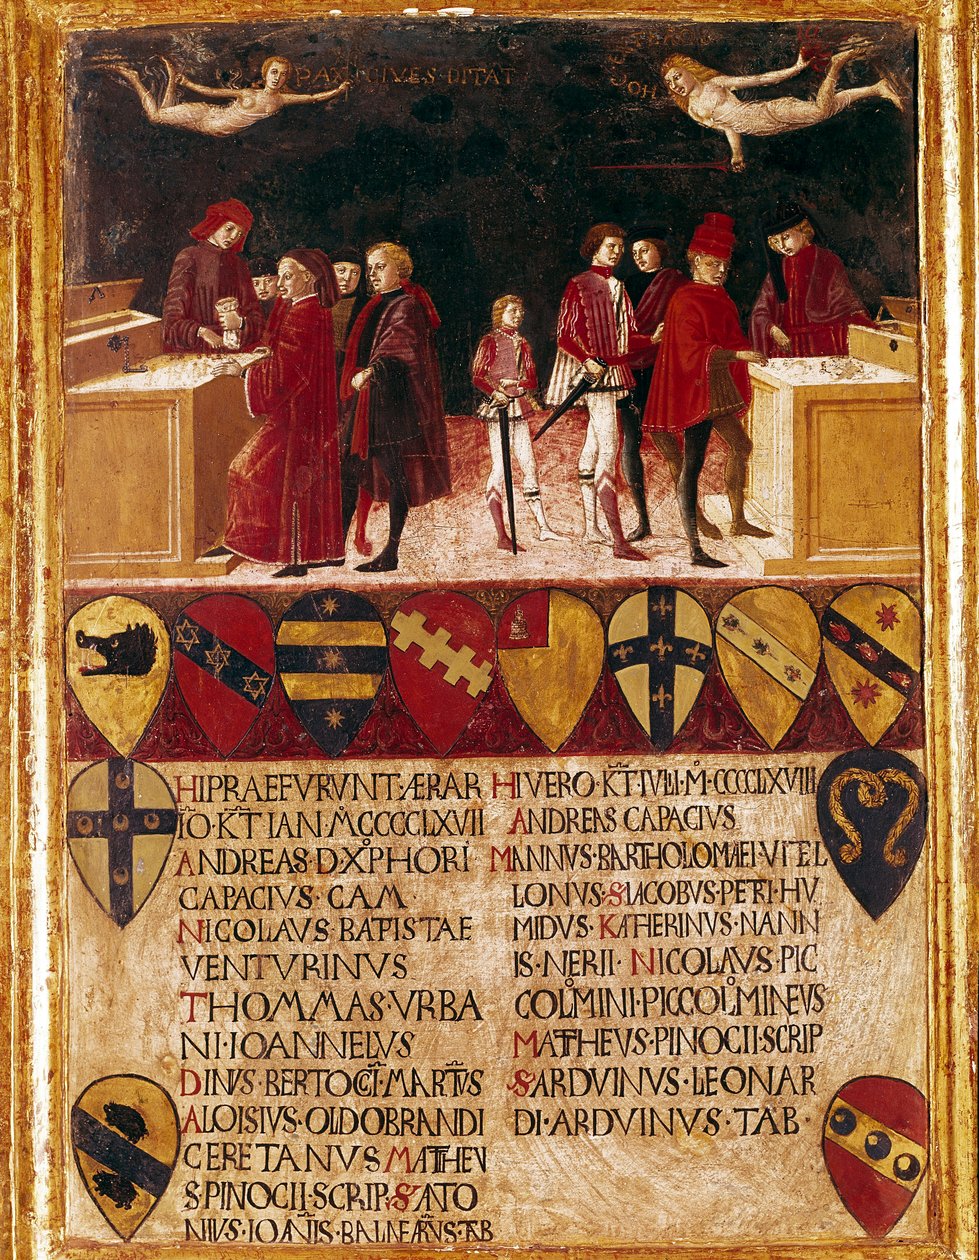 PAX CIVES DITAT
HIPRAEFVRVNT·ÆRAR
IO·KT IAN·M̊CCCCLXVII
ANDREAS·D·XP̊HORI
CAPACIVS·CAM·
NICOLAVS·BATISTAE
VENTVRINVS
THOMMAS·VRBA
NI·IOANNELVS
DINVS·BERTOCCI·MARTVS
ALOISIVS·OLDOBRANDI
CERETANVS MATTHEV
S·PINOCII·SCRIP·S·ATO
NIVS·IOANIS·BALNEARVS·TAB
HIVERO·KT·IVLII·M̊·CCCCLXVIII
ANDREAS CAPACIVS
MANNVS·BARTHOLOMAEI·VITEL
LONVS·SIACOBVS·PETRI·HV
MIDVS·KATHERINVS·NANN
IS·NERII·NICOLAVS·PIC
COLM̊INI·PICCOLM̊INEVS
MATTHEVS·PINOCII·SCRIP
SARDVINVS·LEONAR
DI·ARDVINVS·TAB·